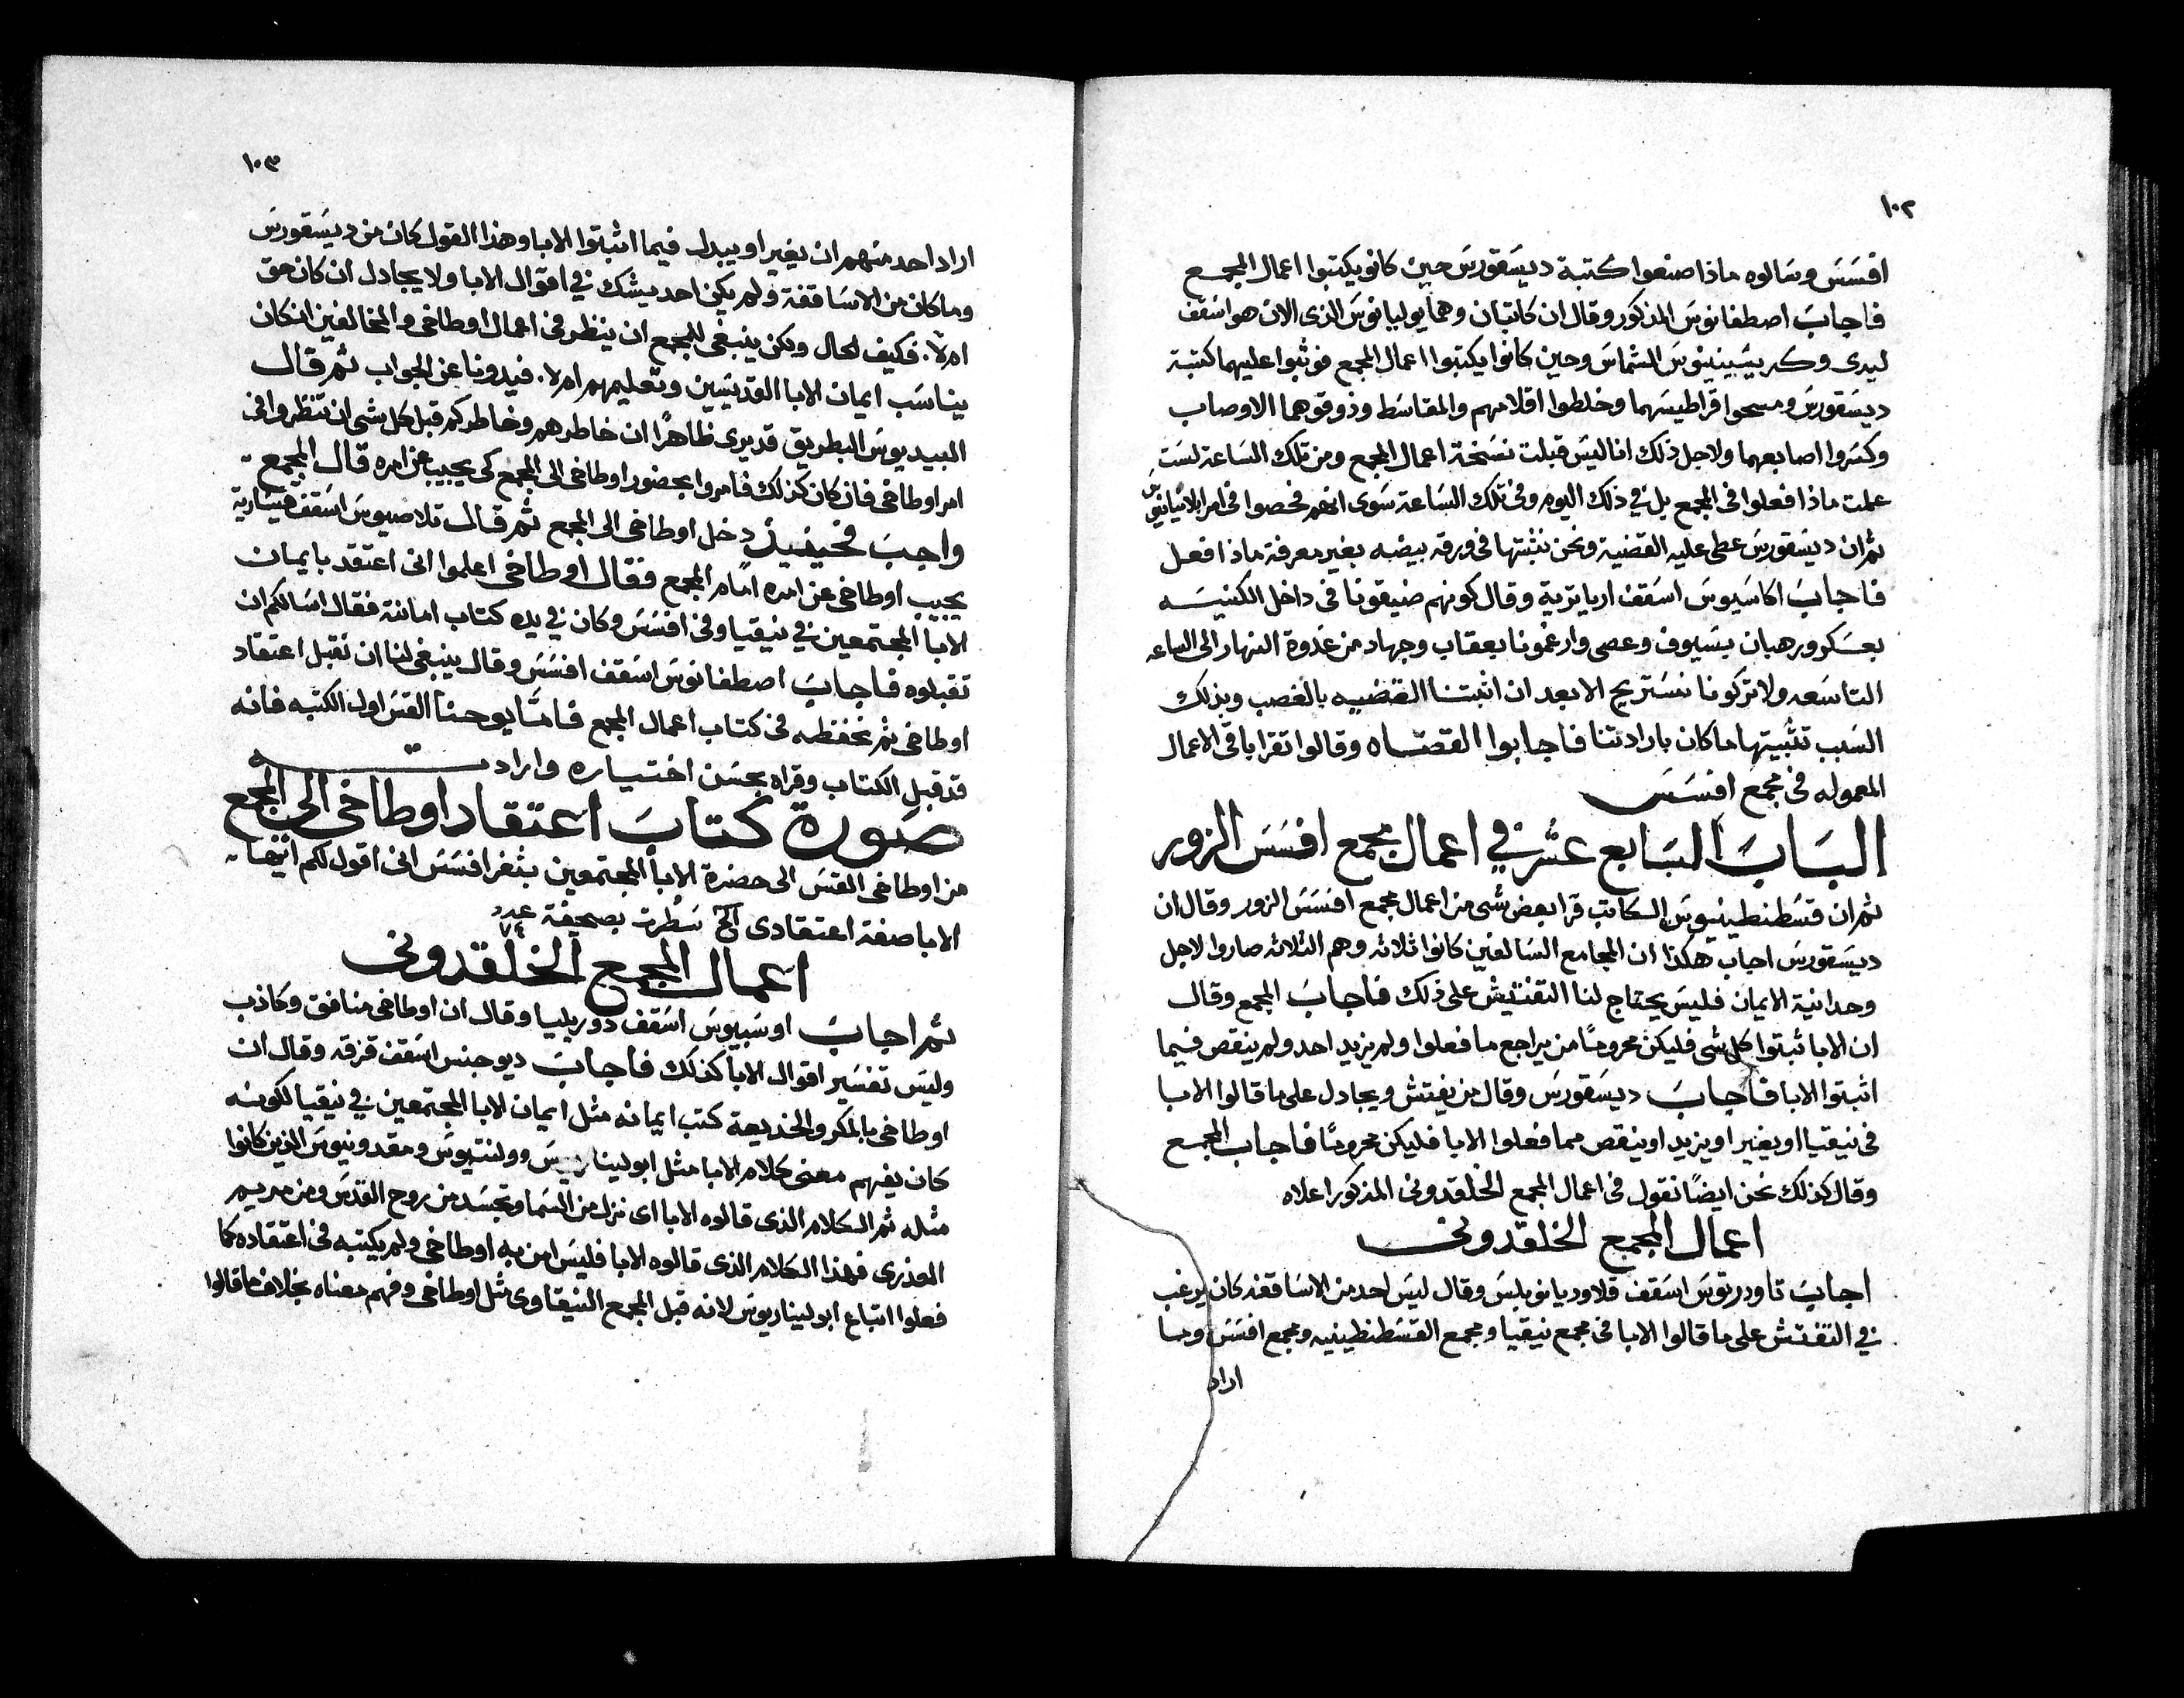 ١٠٢
افسس وسالوه ماذا صنعوا كتبة ديسقورس حين كانو يكتبوا اعمال المجمع
فاجاب اصطفانوس المذكور وقال ان كاتبان وهما يوليانوس الذي الان هو اسقف
ليدى وكريسبينيوس الشماس وحين كانوا يكتبوا اعمال المجمع فوثبوا عليهما كتبة
ديسقورس ومسحوا قراطيسهما وخلطوا اقلامهم والمقاسط وذوقوهما الاوصاب
وكسروا اصابعهما ولاجل ذلك انا ليس قبلت نسخة اعمال المجمع ومن تلك الساعة لست
علمت ماذا فعلوا في المجمع بل في ذلك اليوم وفي تلك الساعة سوى انهم فحصوا في امر ابلابيانوس
ثم ان ديسقورس عطى عليه القضية ونحن نثبتها في ورقه بيضه بغير معرفة ماذا فعل
فاجاب اكاسيوس اسقف ارياترية وقال كونهم ضيقونا في داخل الكنيسه
بعسكر ورهبان بسيوف وعصى وارغمونا بعقاب وجهاد من غدوة النهار الى الساعه
التاسعه ولا تركونا نستريح الا بعد ان اثبتنا القضيه بالغصب وبذلك
السبب تثبيتها ما كان بارادتنا فاجابوا القضاه وقالوا تقرا باقي الاعمال
المعموله في مجمع افسس
الباب السابع عشر في اعمال مجمع افسس الزور
ثم ان قسطنطينيوس الكاتب قرا بعض شى من اعمال مجمع افسس الزور وقال ان
ديسقورس اجاب هكذا ان المجامع السالفين كانوا ثلاثه وهم الثلاثه صاروا لاجل
وحدانية الايمان فليس يحتاج لنا التفتيش على ذلك فاجاب المجمع وقال
ان الابا ثبتوا كل شى فليكن محرومًا من يراجع ما فعلوا ولم يزيد احد ولم ينقص فيما
اثبتوا الابا فاجاب ديسقورس وقال من يفتش ويجادل على ما قالوا الابا
في نيقيا او يغير او يزيد او ينقص مما فعلوا الابا فليكن محرومًا فاجاب المجمع
وقال كذلك نحن ايضًا نقول في اعمال المجمع الخلقدوني المذكور اعلاه
اعمال المجمع الخلقدوني
اجاب تاودريتوس اسقف قلاوديانوبلس وقال ليس احد من الاساقفه كان يرغب
في التفتش على ما قالوا الابا في مجمع نيقيا ومجمع القسطنطينيه ومجمع افسس وما
اراد
١٠٣
اراد احد منهم ان يغير او يبدل فيما اثبتوا الابا وهذا القول كان من ديسقورس
وما كان من الاساقفة ولم يكن احد يشك في اقوال الابا ولا يجادل ان كان حق
ام لا. فكيف الحال ولكن ينبغي للمجمع ان ينظر في اعمال اوطاخي والمخالفين ان كان
يناسب ايمان الابا القديسين وتعليمهم ام لا. فيدونا عن الجواب ثم قال
البيديوس البطريق قد يرى ظاهرًا ان خاطرهم وخاطركم قبل كل شى ان تنظروا في
امر اوطاخي فان كان كذلك فامروا بحضور اوطاخي الى المجمع كى يجيب عن امره قال المجمع
واجب فحينيذٍ دخل اوطاخي الى المجمع ثم قال تلاصيوس اسقف قيسارية
يجيب اوطاخي عن امره امام المجمع فقال اوطاخي اعلموا اني اعتقد بايمان
الابا المجتمعين في نيقيا وفي افسس وكان في يده كتاب امانته فقال اسالكم ان
تقبلوه فاجاب اصطفانوس اسقف افسس وقال ينبغي لنا ان نقبل اعتقاد
اوطاخي ثم نحفظه في كتاب اعمال المجمع فامّا يوحنا القس اول الكتبه فانه
قد قبل الكتاب وقراه بحسن اختياره وارادته
صورة كتاب اعتقاد اوطاخي الى المجمع
من اوطاخي القس الى حضرة الابا المجتمعين بثغر افسس اني اقول لكم ايها
الابا صفة اعتقادى الخ سطرت بصحيفة عدد ٧٤
اعمال المجمع الخلقدوني
ثم اجاب اوسبيوس اسقف دوريليا وقال ان اوطاخي منافق وكاذب
وليس تفسير اقوال الابا كذلك فاجاب ديوجنس اسقف قزقه وقال ان
اوطاخي بالمكر والخديعة كتب ايمانه مثل ايمان الابا المجتمعين في نيقيا لكونه
كان يفهم معنى كلام الابا مثل ابوليناريس وولنتيوس ومقدونيوس الذين كانوا
مثله ثم الكلام الذي قالوه الابا اى نزل من السما وتجسد من روح القدس ومن مريم
العذرى فهذا الكلام الذي قالوه الابا فليس امن به اوطاخي ولم يكتبه في اعتقاده كما
فعلوا اتباع ابوليناريوس لانه قبل المجمع النيقاوى مثل اوطاخي وفهم معناه بخلاف ما قالوا